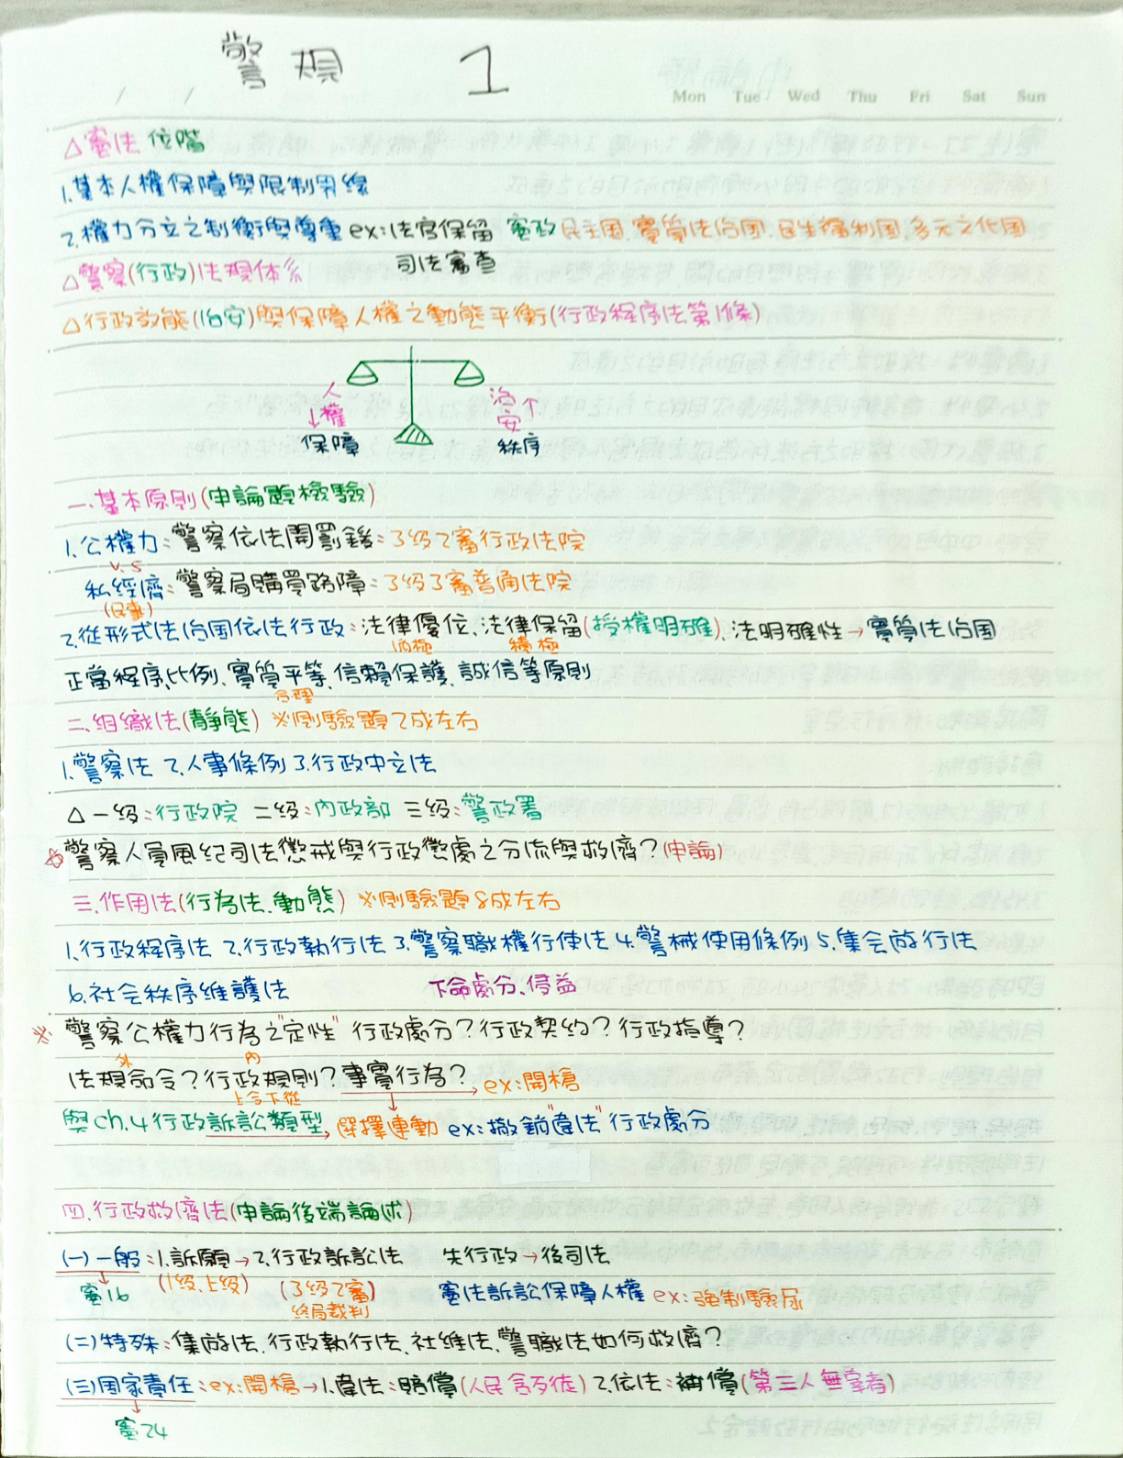 警規 1
Mon Tue Wed Thu Fri Sat Sun
△憲法位階
1.基本人權保障與限制界線
2.權力分立之制衡與尊重 ex:法官保留 憲政民主國、實質法治國、民生福利國、多元文化國
司法審查
△警察(行政)法規体系
△行政效能(治安)與保障人權之動態平衡(行政程序法第1條)
人權↓ 治安↑
保障 秩序
一.基本原則(申論題檢驗)
1.公權力:警察依法開罰鍰:3級2審行政法院
v.s
私經濟:警察局購買路障:3級3審普通法院
(民事)
2.從形式法治國依法行政:法律優位、法律保留(授權明確)、法明確性→實質法治國
消極 積極
正當程序、比例、實質平等、信賴保護、誠信等原則
合理
二.組織法(靜態) ※測驗題2成左右
1.警察法 2.人事條例 3.行政中立法
△一級:行政院 二級:內政部 三級:警政署
☆警察人員風紀司法懲戒與行政懲處之分流與救濟?(申論)
三.作用法(行為法、動態) ※測驗題8成左右
1.行政程序法 2.行政執行法 3.警察職權行使法 4.警械使用條例 5.集会遊行法
6.社会秩序維護法 下命處分、侵益
※警察公權力行為之"定性" 行政處分?行政契約?行政指導?
外 內
法規命令?行政規則?事實行為?→ex:開槍
上令下從
與ch.4行政訴訟類型→選擇連動 ex:撤銷"違法"行政處分
四.行政救濟法(申論後端論述)
(一)一般:1.訴願→2.行政訴訟法 先行政→後司法
憲16 (1級、上級) (3級2審) 憲法訴訟保障人權 ex:強制驗尿
終局裁判
(二)特殊:集遊法、行政執行法、社維法、警職法如何救濟?
(三)國家責任:ex:開槍→1.違法:賠償(人民含歹徒) 2.依法:補償(第三人無辜者)
憲24